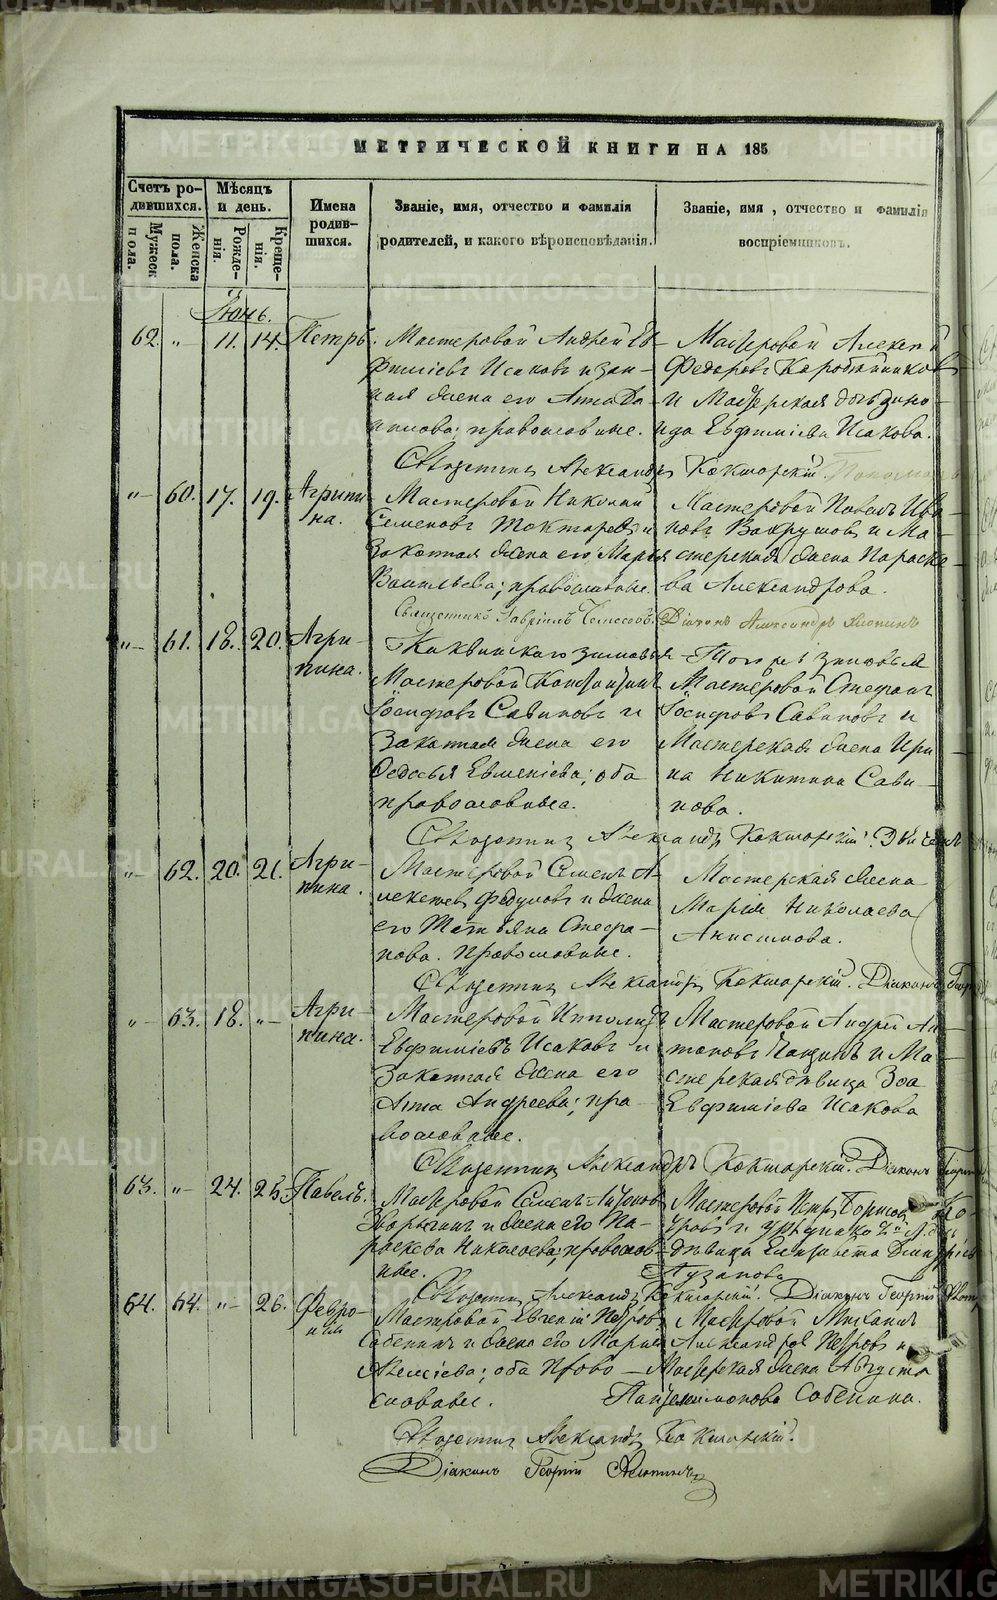 МЕТРИЧЕСКОЙ КНИГИ НА 185
Счетъ ро-
дившихся.
Мѣсяцъ
и день.
Имена
родив-
шихся.
Званіе, имя, отчество и фамилія
родителей, и какого вѣроисповѣданія.
Званіе, имя, отчество и фамилія
воспріемниковъ.
Мужеск
пола.
Женска
пола.
Рожде-
нія.
Креще-
нія.
Іюнь.
62. „ 11. 14. Петръ.
Мастеровой Андрей Ев-
фиміевъ Исаковъ и закон-
ная жена его Анна
православные.
Мастеровой Алексѣй
Федоровъ Коробейниковъ
и Мастерская дѣвица
Евфиміева Исакова.
Священникъ Александръ Кокшарскій.
„ 60. 17. 19. Агрипи
на.
Мастеровой Николай
Семеновъ Токтаревъ и
Законная жена его Марья
Васильева; православные.
Мастеровой Павелъ Ива-
новъ Вахрушевъ и Ма-
стерская жена Параске-
ва Александрова.
Священникъ Гавріилъ Діаконъ
„ 61. 18. 20. Агри-
пина.
Каквинскаго зимовья
Мастеровой Констатинъ
Іосифовъ Савиновъ и
Законная жена его
Федосья Евменіева; оба
православные.
Того ръ зимовья
Мастеровой Стефанъ
Іосифовъ Савиновъ и
Мастерская жена Ири-
на Никитина Сави-
нова.
Священникъ Александръ Кокшарскій.
„ 62. 20. 21. Агри-
пина.
Мастеровой Семенъ А-
лексѣевъ Федуловъ и жена
его Татьяна Стефа-
нова. Православные.
Мастерская жена
Марія Николаева
Анисимова.
Священникъ Александръ Кокшарскій. Діаконъ
„ 63. 18. „ Агри-
пина.
Мастеровой Ипполитъ
Евфиміевъ Исаковъ и
Законная жена его
Анна Андреева; пра-
вославные.
Мастеровой Андрей Ан-
тоновъ и Ма-
стерская дѣвица Зоя
Евфиміева Исакова
Священникъ Александръ Кокшарскій. Діаконъ
63. „ 24. 25. Павелъ.
Мастеровой Семенъ
и жена его Па-
раскева Николаева; православ-
ные.
Мастеровой Петръ Борисовъ
дѣвица Елизавета Дмитріева
Пузанова
Священникъ Александръ Кокшарскій. Діаконъ Георгій
64. 64. „ 26. Февро-
нія
Мастеровой Евгеній Петровъ
Собенинъ и жена его Марія
Алексіева; оба право-
славные.
Мастеровой Михаилъ
Александровъ Петровъ и
Мастерская жена Августа
Пантелеимонова Собенина.
Священникъ Александръ Кокшарскій.
Діаконъ Георгій